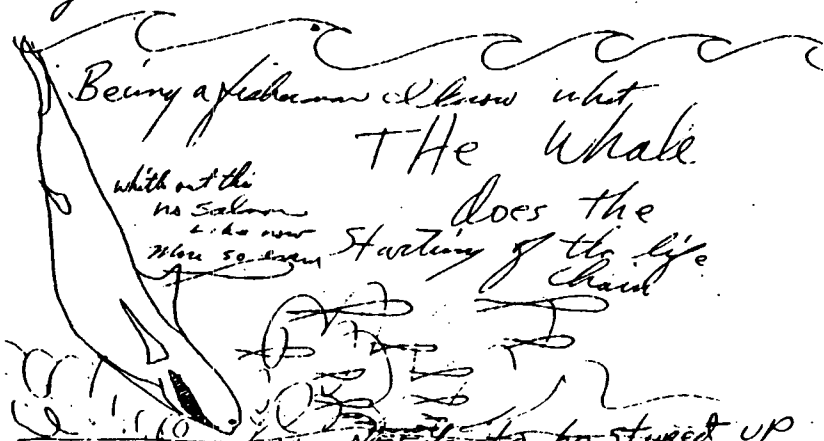 Being a fisherman I know what
THe Whale
does the
Starting of the life
chain
whith out this
no salmon
Like now
more so even
to be stured up